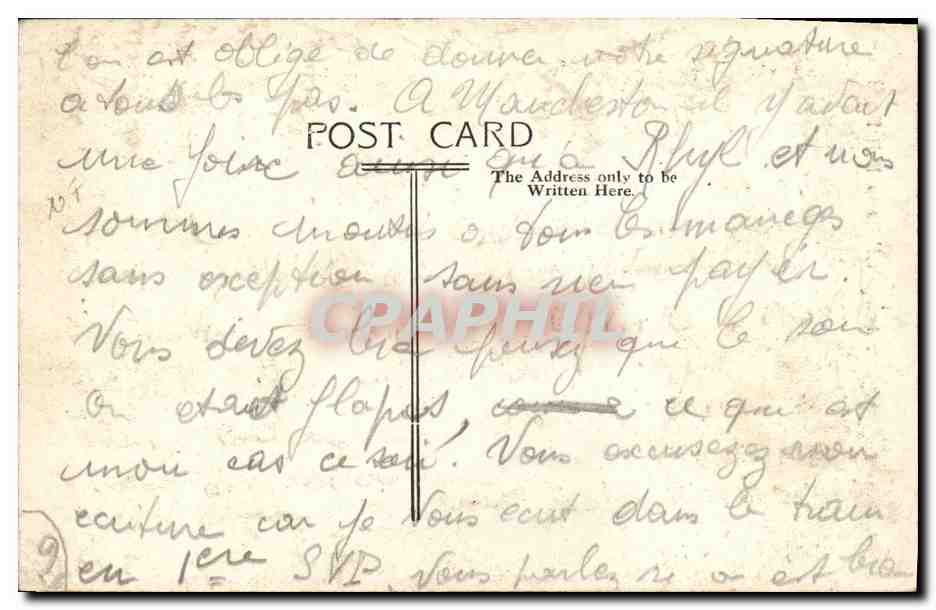 l'on est obligé de donner votre signature
a tous les pas. A Manchester il y avait
POST CARD
une foire qu'a Rhyl et nous
The Address only to be
Written Here.
sommes montés a tous les manèges
sans exception sans rien payer.
CPAPHIL
Vous devez bien pensez que le soir
on etait flapis, ce qui est
mon cas ce soir. Vous excuserez mon
ecriture car je vous ecrit dans le train
9
en 1ere SVP. Vous parlez si on est bien